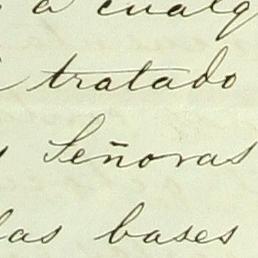 a cualq
tratado
Señoras
las bases